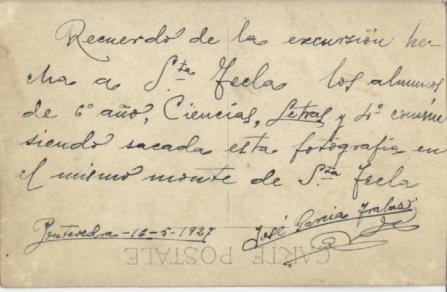 Recuerdo de la excursión he-
cha a S.ta Tecla los alumnos
de 6º año, Ciencias, Letras y 4º
siendo sacada esta fotografía en
el mismo monte de S.ta Tecla
Pontevedra - 16-5-1927 José García
CARTE POSTALE